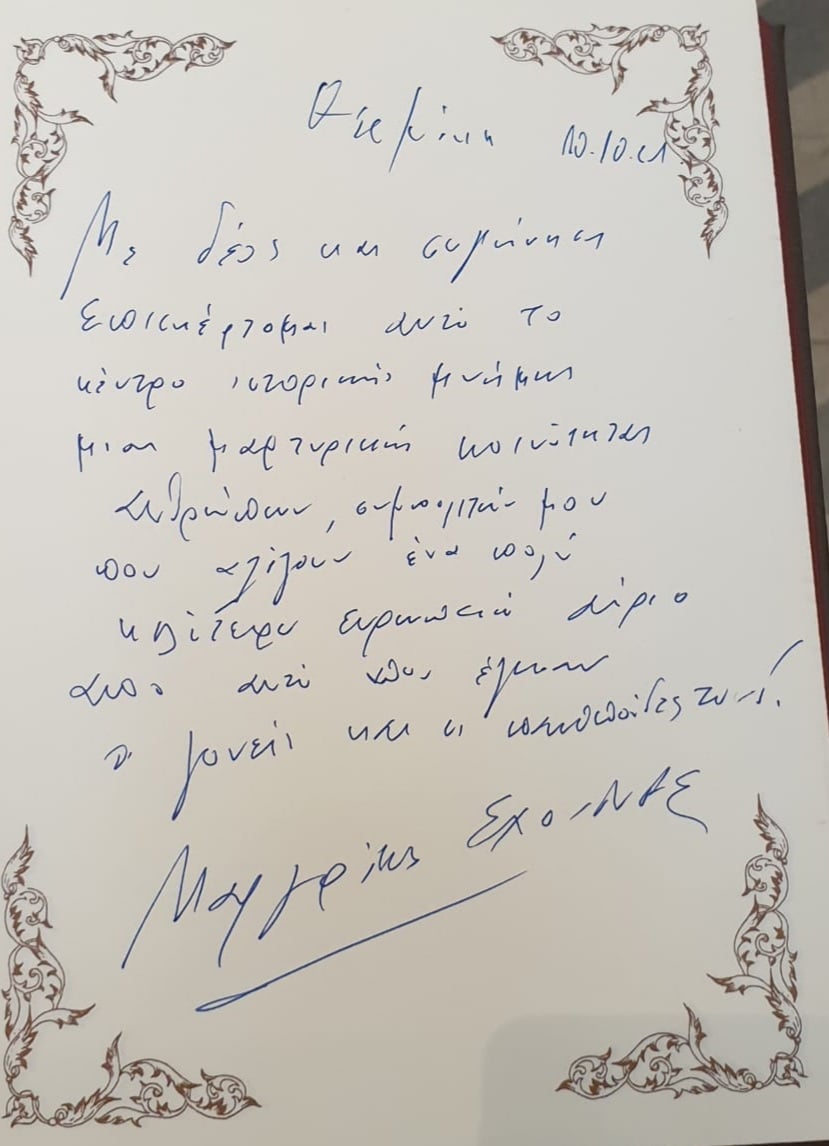 Θεσ/νίκη 10.10.21
Με δέος και συγκίνηση
επισκέφτομαι αυτό το
κέντρο ιστορικής μνήμης
μιας μαρτυρικής κοινότητας
ανθρώπων, συμπολιτών μου
που αξίζουν ένα πολύ
καλύτερο ευρωπαϊκό αύριο
από αυτό που έζησαν
οι γονείς και οι παππούδες τους!
Μαργαρίτης Σχοινάς